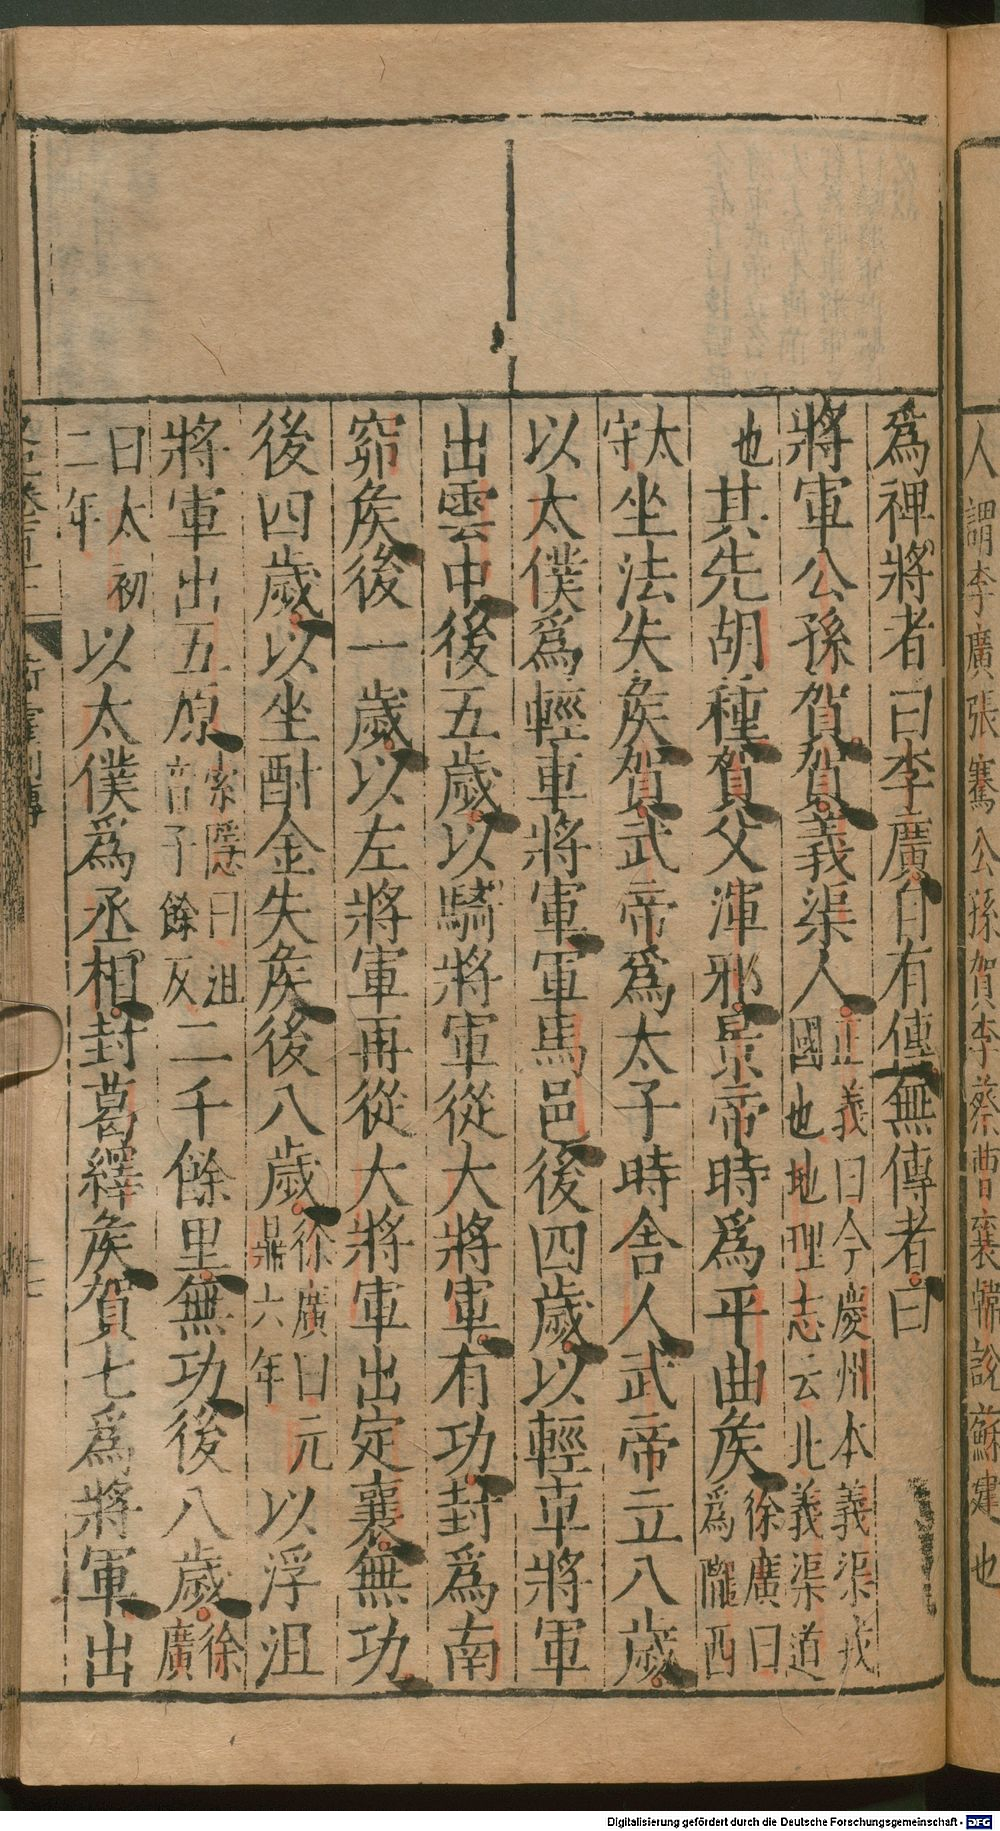 人謂李廣張騫公孫賀李蔡曹襄韓說蘇建也
爲裨將者曰李廣自有傳無傳者曰
將軍公孫賀賀義渠人正義曰今慶州本義渠戎國也地理志云北義渠道
也其先胡種賀父渾邪景帝時爲平曲矦徐廣曰爲隴西
太守坐法失矦賀武帝爲太子時舍人武帝立八歲
以太僕爲輕車將軍軍馬邑後四歲以輕車將軍
出雲中後五歲以騎將軍從大將軍有功封爲南
窌矦後一歲以左將軍再從大將軍出定襄無功
後四歲以坐酎金失矦後八歲徐廣曰元鼎六年以浮沮
將軍出五原索隱曰沮音子餘反二千餘里無功後八歲徐廣
曰太初二年以太僕爲丞相封葛繹矦賀七爲將軍出
Digitalisierung gefördert durch die Deutsche Forschungsgemeinschaft - DFG